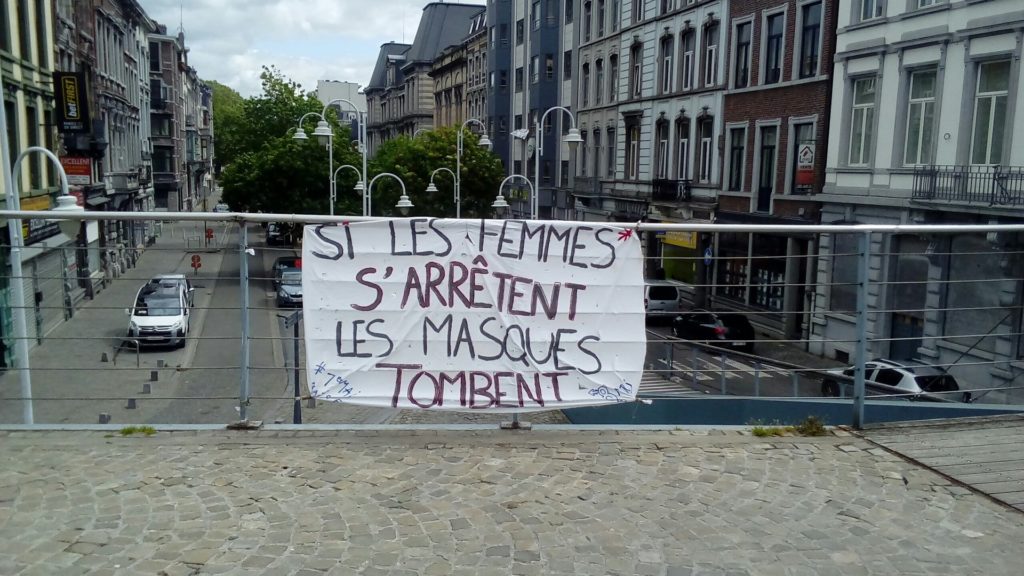 SI LES FEMMES
S'ARRÊTENT
LES MASQUES
TOMBENT
EXCELLENT